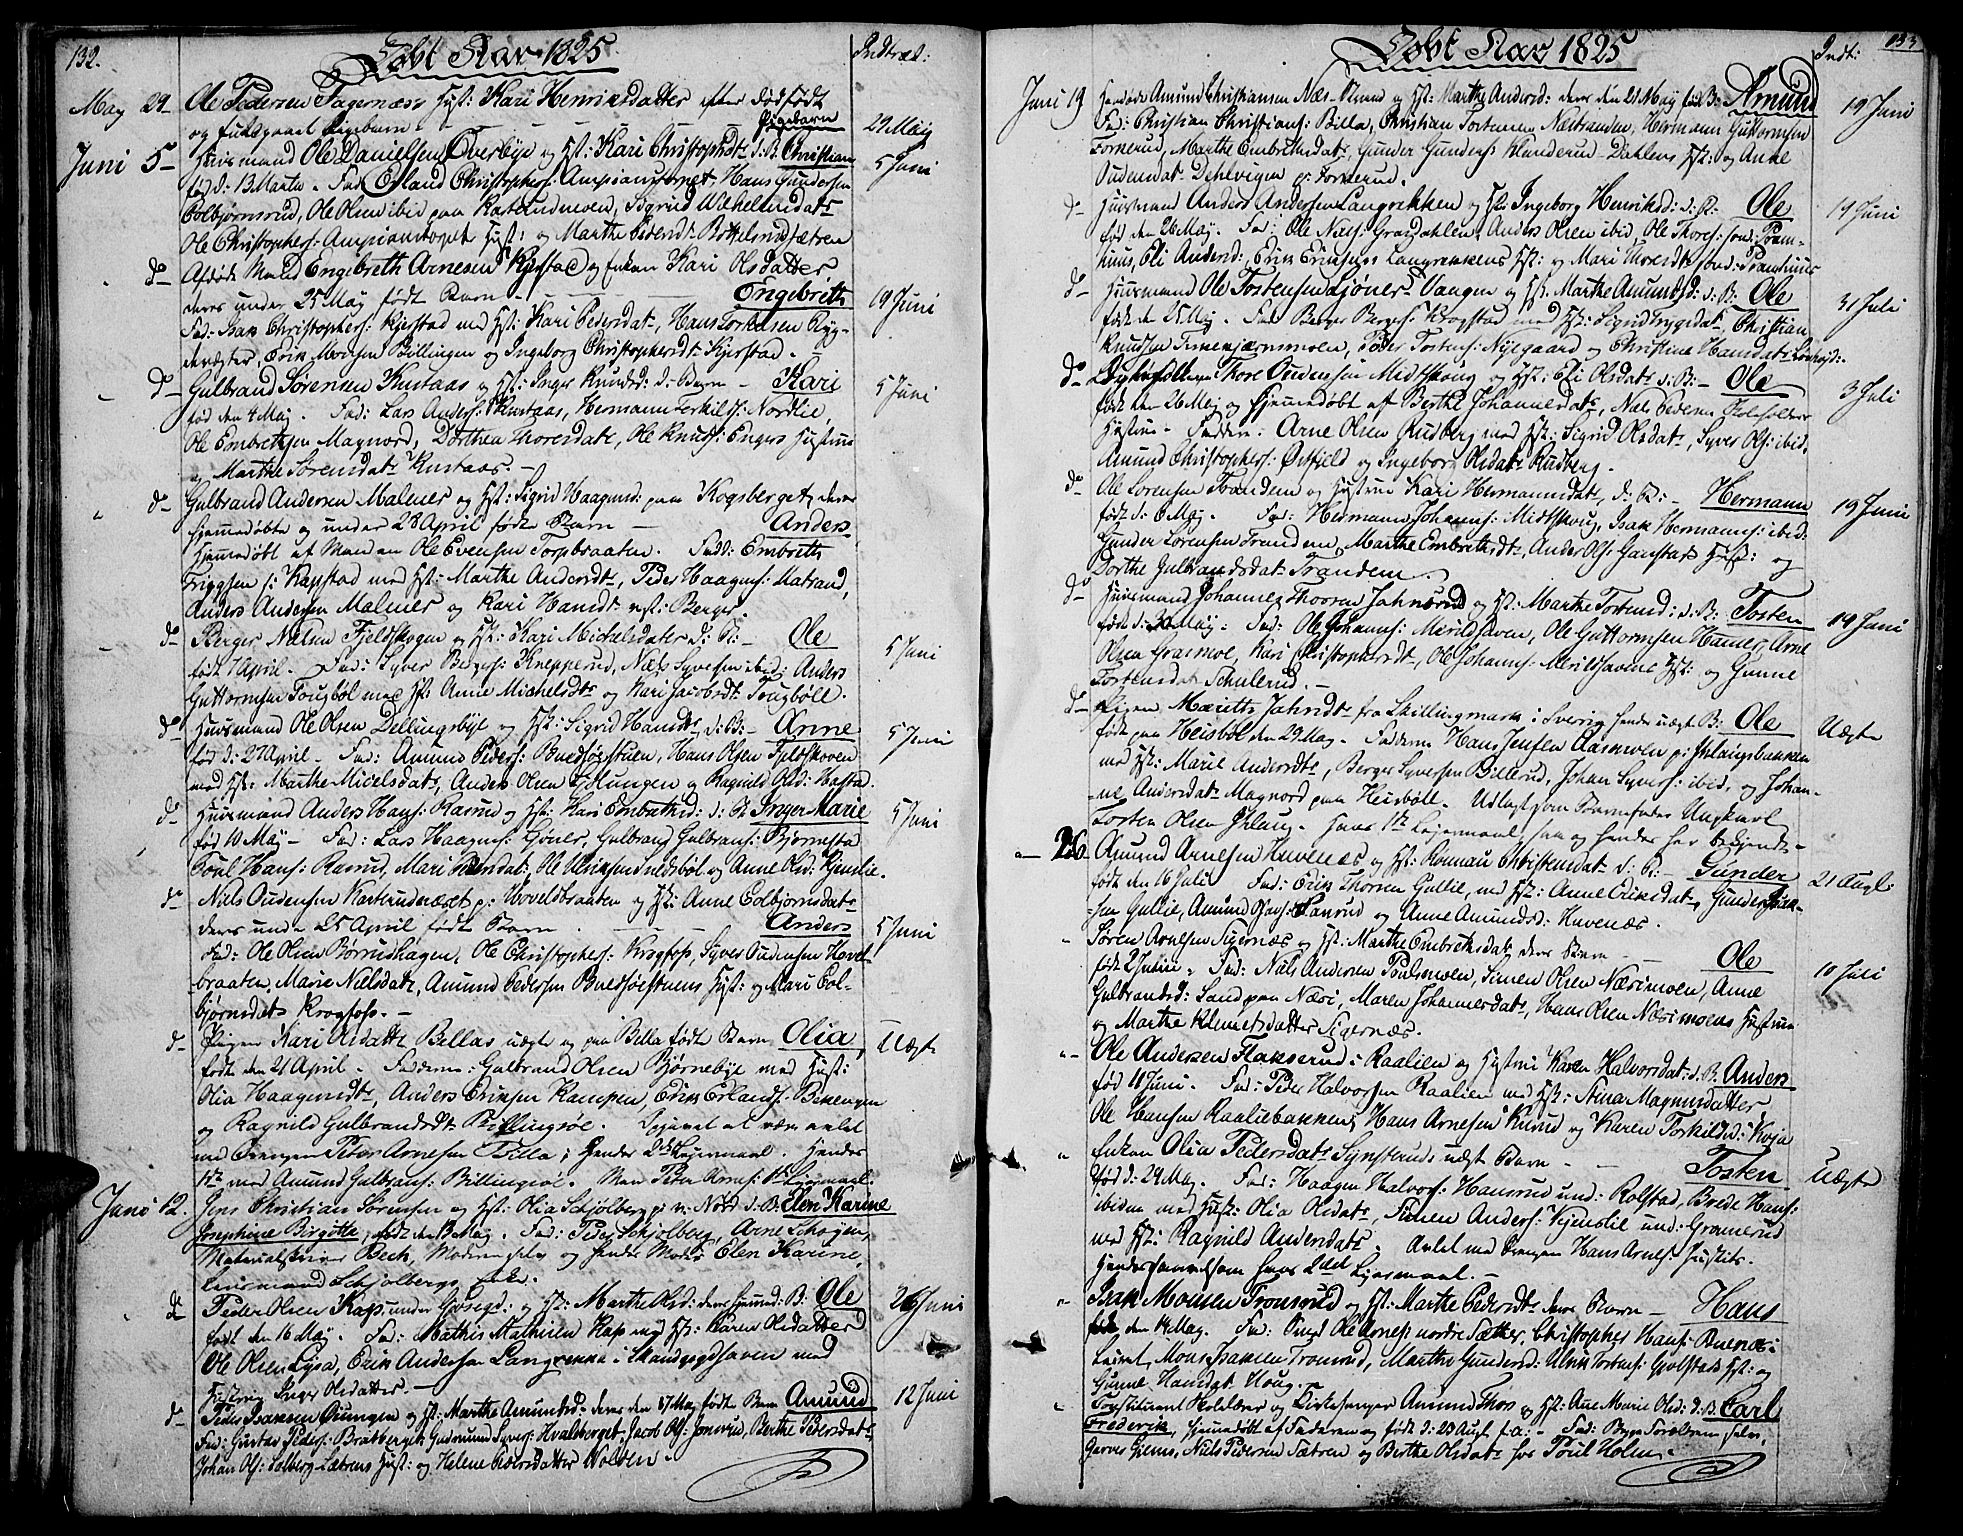 132.
Døbt Aar 1825
Indtræd:
May 29 Ole Pedersen Fagernæs Hst: Kari Henriksdatter efter dødfødt
og Pigebarn Pigebarn 29 Maij
Juni 5 Huusmand Ole Danielsen Overbye og Hst: Kari Christophdt d: B. Christian 5 Juni
fød d: 13 Martii Fad: Erland Christophers: Ampiansternet, Hans Gundersen
Colbjørnsrud, Ole Olsen ibid paa Sigrid Wilhelmsdatr
Ole Christophers: Hst: og Marthe Pedersdt sætren
do Afdøde Mand Engebreth Arnesen Kjerstad og Enken Kari Olsdatter
deres under 25 May født Barn Engebreth 19 Juni
Fad: Isak Christophers: Kjerstad med Hst: Kari Pedersdatr, Hans Torkilsen Ryg-
Erik Mortsen Billingen og Ingeborg Christophersdt Kjerstad.
do Gulbrand Sørensen Kustaas og Hst: Inger Knudsd: d: Barn Kari 5 Juni
fød den 4 Maj. Fad: Lars Anders: Kustaas, Hermann Torkilds: Nordlie,
Ole Embretsen Magnord, Dorthea Thoresdatr, Ole Knuds: Engers Hustrue
og Marthe Sørensdatr Kustaas.
do Gulbrand Andersen Malmer og Hst: Sigrid Haagensd: paa Kogsberget, deres
hjemmedøbte og under 28 April fødte Barn Anders
hjemmedøbt af Manden Ole Evensen Torpbraaten. Fadd: Embreth
Tryggsen Kapstad med Hst: Marthe Andersdt, Peder Haagens: Matrand,
Anders Andersen Malmer og Kari Hansdt Berger.
do Berger Nielsen Fjeldskogen og Hst: Kari Michelsdatter d: B: Ole 5 Juni
født 7 April. Fad: Syver Bergers: Knepperud, Syversen ibid; Anders
Guttormsen Tougbøl med Hst: Anne Michelsdtr og Kari Jacobsdt Tougbøll.
do Huusmand Ole Olsen Dellingsbye og Hst: Sigrid Hansdtr d: B: Anne 5 Juni
fød d: 27 April. Fad: Amund Peders: Buedsøestuen, Hans Olsen Fjeldskoven
med Hst: Marthe Micelsdatr, Anders Olsen og Ragnild Olsd:
do Huusmand Anders Hans: Rasrud og Hst: Kari Embrethsd: d: B Inger Marie 5 Juni
fød 10 Maj. Fad: Lars Haagens: Gjøner, Gulbrand Gulbrans: Bjørnstad
Poul Hans: Rasrud, Mari Hansdat: Ole og Anne Olsd: Kjenslie.
do Niels Oudensen Karterudnæset p: Hovelsbraaten og Hst: Anne Colbjørnsdatr
deres under 25 April født Barn Anders 5 Juni
Fad: Ole Olsen Børrudshagen, Ole Christophers: Krogfoss, Syver Oudensen Hovel-
braaten, Marie Nielsdatr, Amund Pedersen Buedsøestuens Hst: og Mari Col-
bjørnsdatr Krogfoss.
do Pigen Kari Olsdatter Bellas uægte og paa Bella født Barn Olia Uægte
født den 21 April. Fadderne: Gulbrand Olsen Bjørnebye med Hust:
Olia Haagensdtr, Anders Eriksen Kampen, Erik Erlands: Bekengen
og Ragnild Gulbrandsdt Billingsøe. Opgivet at være avlet
med Drengen Peter Arnesen Tilla; hendes 2det Lejermaal. Hendes
1te med Amund Gulbrans: Billingsøe. Men Peter Arnes: 1te Lejermaal.
Juni 12. Jens Christian Sørensen og Hst: Olia Schjølberg Nord d: B. Elen Karine
Josephine Birgitte, født den 13 Maj. Fad: Peder Schjølberg, Arne Schogen,
Materialskriver Beck, Moderen selv og hendes Moder Elen Karine
Lensmand Schjølbergs Enke.
do Peder Olsen Kap under Gjøsegd: og Hst: Marthe Olsd: deres B: Ole 26 Juni
født den 16 Maj. Fad: Mathis Mathisen Kap med Hst: Karen Olsdatter
Ole Olsen Lysa, Erik Andersen Langrekke i med
Hustru Inger Olsdatter.
do Peder Isaksen Oiungen og Hst: Marthe Amundsd: deres den 17 Maj fødte Barn Amund 12 Juni
Fad: Gustav Peders: Bratberget, Gudmund Syvers: Hvalsberget, Jacob Ols: Jonsrud, Berthe Pedersdatr,
Johan Ols: Solberg Hust: og Helene Pedersdatter Nolden.
Døbt Aar 1825
Indt: 133
Juni 19 Amund Christiansen Næs-Strand og Hst: Marthe Andersd: deres den 21 May fød B: Amund 19 Juni
Fad: Christian Christians: Billa, Christian Tostensen Næsstranden, Hermann Guttormsen
Fornerud, Marthe Embrethsdatr, Gunder Gunders: Klanderud Dahlens Hst: og Anne
Oudensdatr Dehlvigen p: Fornerud.
do Huusmand Anders Andersen Langrekken og Hst: Ingeborg Henriksd: d: B: Ole 19 Juni
fød den 26 Maj. Fad: Ole Næs: Grasdahlen, Anders Olsen ibid, Ole Thores: Pram-
huus, Eli Andersd: Erik Eriksens Langrekkens Hst: og Mari Thoresdt Pramhuus
do Huusmand Ole Tostensen Sjøner Vangen og Hst. Marthe Amundsd: d: B: Ole 31 Juli
født den 25 Maj. Fad: Berger Bergers: Krogstad med Hst: Sigrid Trygsdatr, Christian
Knudsen Peder Tostens: Nyegaard og Christine Hansdatr
do Tore Oudensen Midtskoug og Hst: Eli Olsdatr d: B: Ole 3 Juli
født den 26 Maj og hjemmedøbt af Berthe Johannesdatr, Næls Pedersen
Hustrue. Fadder: Arne Olsen Rudberg med Hst: Sigrid Olsdatr, Syver Ols: ibid.
Amund Christophers: Østfjeld og Ingeborg Olsdatr Rudberg.
do Ole Sørensen Tranden og Hustrue Kari Hermannsdatr d: B: Hermann 19 Juni
født d: 6 Maj. Fad: Hermann Johanns: Midtskoug, Isak Hermanns: ibid:
Gunder Sørensen Tranden, Marthe Embrethsdt, Anders Ols: Hust: og
Dorthe Gulbrandsdatr Tranden.
do Huusmand Johannes Thoresen Jahnsrud og Hst: Marthe Tostensd: d: B: Tosten 19 Juni
født d: 30 Maj. Fad: Ole Johanns: Merildhaven, Ole Guttormsen Hammer, Arne
Olsen Grasmoe, Kari Christophersdt, Ole Johanns: Merildhavens Hst: og Gunne
Tostensdatr Schulerud.
do Pigen Mærith Jahnsdt fra Skillingmark i Sverig hendes uægt B: Ole Uægte
født paa Heisbøl den 29 Maj. Fadderne Hans Jensen Aasmoen p:
med Hst: Marie Andersdtr, Berger Syversen Billerud, Johan Syvers: ibid, og Johan-
ne Andersdatr Magnord paa Heisbøll. Udlagt som Barnefader Ungkarl
Tosten Olsen Ihlang. Hans 1te Lejermaal, hun og hendes her bekjendt.
26 Amund Arnesen Huvenæs og Hst: Rønnau Christensdatr d: B: Gunder 21 Aug:
født den 16 Juli Fad: Erik Thorsen Gullie, med Hst: Anne Eriksdatr, Gunder Erik-
sen Gullie, Amund Sanrud og Anne Amundsd: Huvenæs.
Søren Arnesen Sigernæs og Hst: Marthe Embrethsdatr deres Barn Ole 10 Juli
født 2 Junii. Fad: Niels Andersen Poulsmoen, Simen Olsen Næsrimoen, Anne
Gulbrandsd: Sand paa Næsri, Maren Johannesdatr, Hans Olsen Næsrimoens Hustrue
og Marthe Klemetsdatter Sigernæs.
Ole Andersen Flakserud i Raalien og Hustru Karen Halvorsdatr: d. B. Anders
fød 11 Juni. Fad: Peder Halvorsen Raalien med Hst: Stina Magnusdatter
Ole Hansen Raaliebakken, Hans Arnesen Kilrud og Karen Torkildsd: Koja
Enken Olia Pedersdatr Synstruds uægt Barn Tosten Uægte
født d: 29 Maj. Fad: Haagen Halvors: Hansrud und: Rolstad, Brede Hans:
ibidem med Hust: Olia Olsdatr, Simen Anders: Kjenslie und: Grannerud
med Hst: Ragnild Andersdatr. Avlet med Drengen Hans Arnes: Justits-
Hendes som hans 2det Lejermaal.
Isak Monsen Tronsrud og Hst: Marthe Pedersdtr deres Barn Hans
født den 14 Maj. Fad: Smed Ole Arnes: nordre Sætter, Christopher Hans: Buenæs-
Mons Isaksen Tronsrud, Marthe Gundersd: Ulrik Tostens: Golstads Hst: og
Gunne Hansdatr Houg.
Constitueret Skolelærer og Kirkesanger Amund Thos og Hst: Ane Marie Olsd: d: B. Carl
Frederik, hjemmedøbt af Faderen og født d: 23 Aug: Fad: selv,
Garver Giems, Niels Pedersen Sætren og Berthe Olsdatr hos Poul Holm.